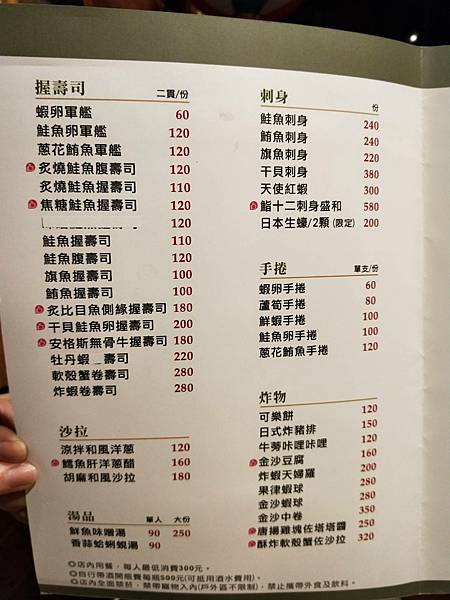 握壽司 二貫/份
蝦卵軍艦 60
鮭魚卵軍艦 120
蔥花鮪魚軍艦 120
炙燒鮭魚腹壽司 120
炙燒鮭魚握壽司 110
焦糖鮭魚握壽司 120
120
鮭魚握壽司 110
鮭魚腹壽司 120
旗魚握壽司 100
鮪魚握壽司 100
炙比目魚側緣握壽司 180
干貝鮭魚卵握壽司 200
安格斯無骨牛握壽司 180
牡丹蝦_壽司 220
軟殼蟹卷壽司 280
炸蝦卷壽司 280
沙拉
涼拌和風洋蔥 120
鱈魚肝洋蔥醋 160
胡麻和風沙拉 180
湯品 單人 大份
鮮魚味噌湯 90 250
香蒜蛤蜊蜆湯 90
○店內用餐，每人最低消費300元。
○自行帶酒開瓶費每瓶500元(可抵用酒水費用)。
○店內全面禁菸，禁帶寵物入內(戶外區不限制)，禁止攜帶外食及飲料。
刺身 份
鮭魚刺身 240
鮪魚刺身 240
旗魚刺身 220
干貝刺身 380
天使紅蝦 300
鮨十二刺身盛和 580
日本生蠔/2顆(限定) 200
手捲 單支/份
蝦卵手捲 60
蘆筍手捲 80
鮮蝦手捲 100
鮭魚卵手捲 100
蔥花鮪魚手捲 120
炸物
可樂餅 120
日式炸豬排 150
牛蒡咔哩咔哩 120
金沙豆腐 160
炸蝦天婦羅 200
果律蝦球 280
金沙蝦球 280
金沙中卷 350
唐揚雞塊佐塔塔醬 250
酥炸軟殼蟹佐沙拉 320